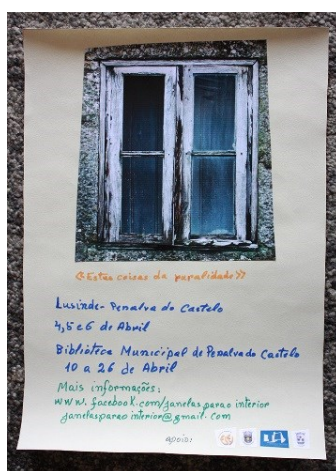 «Estas coisas da ruralidade»
Lusinde - Penalva do Castelo
4, 5 e 6 de Abril
Biblioteca Municipal de Penalva do Castelo
10 a 26 de Abril
Mais informações:
www.facebook.com/janelasparaointerior
janelasparaointerior@gmail.com
apoio: